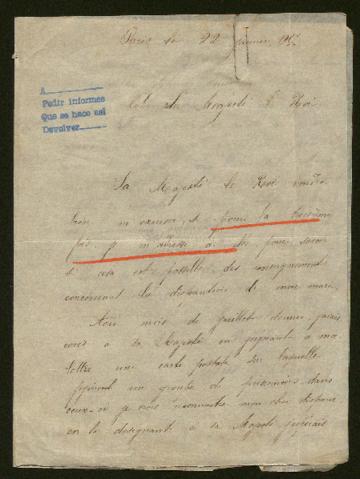 Paris le 22
A
Pedir informes
Que se hace así
Devolver
Sa Majesté le Roi
Sa Majesté le Roi voudra
bien m'excuser si pour la troisième
fois je m'adresse à
si cela est possible des renseignements
concernant la disparition de mon mari
Au mois de juillet dernier j'avais
écrit à Sa Majesté en joignant à ma
lettre une carte postale sur laquelle
figurait un groupe de prisonniers dans
ceux-ci je crois reconnaître mon cher disparu
en le désignant à Sa Majesté j'espérais